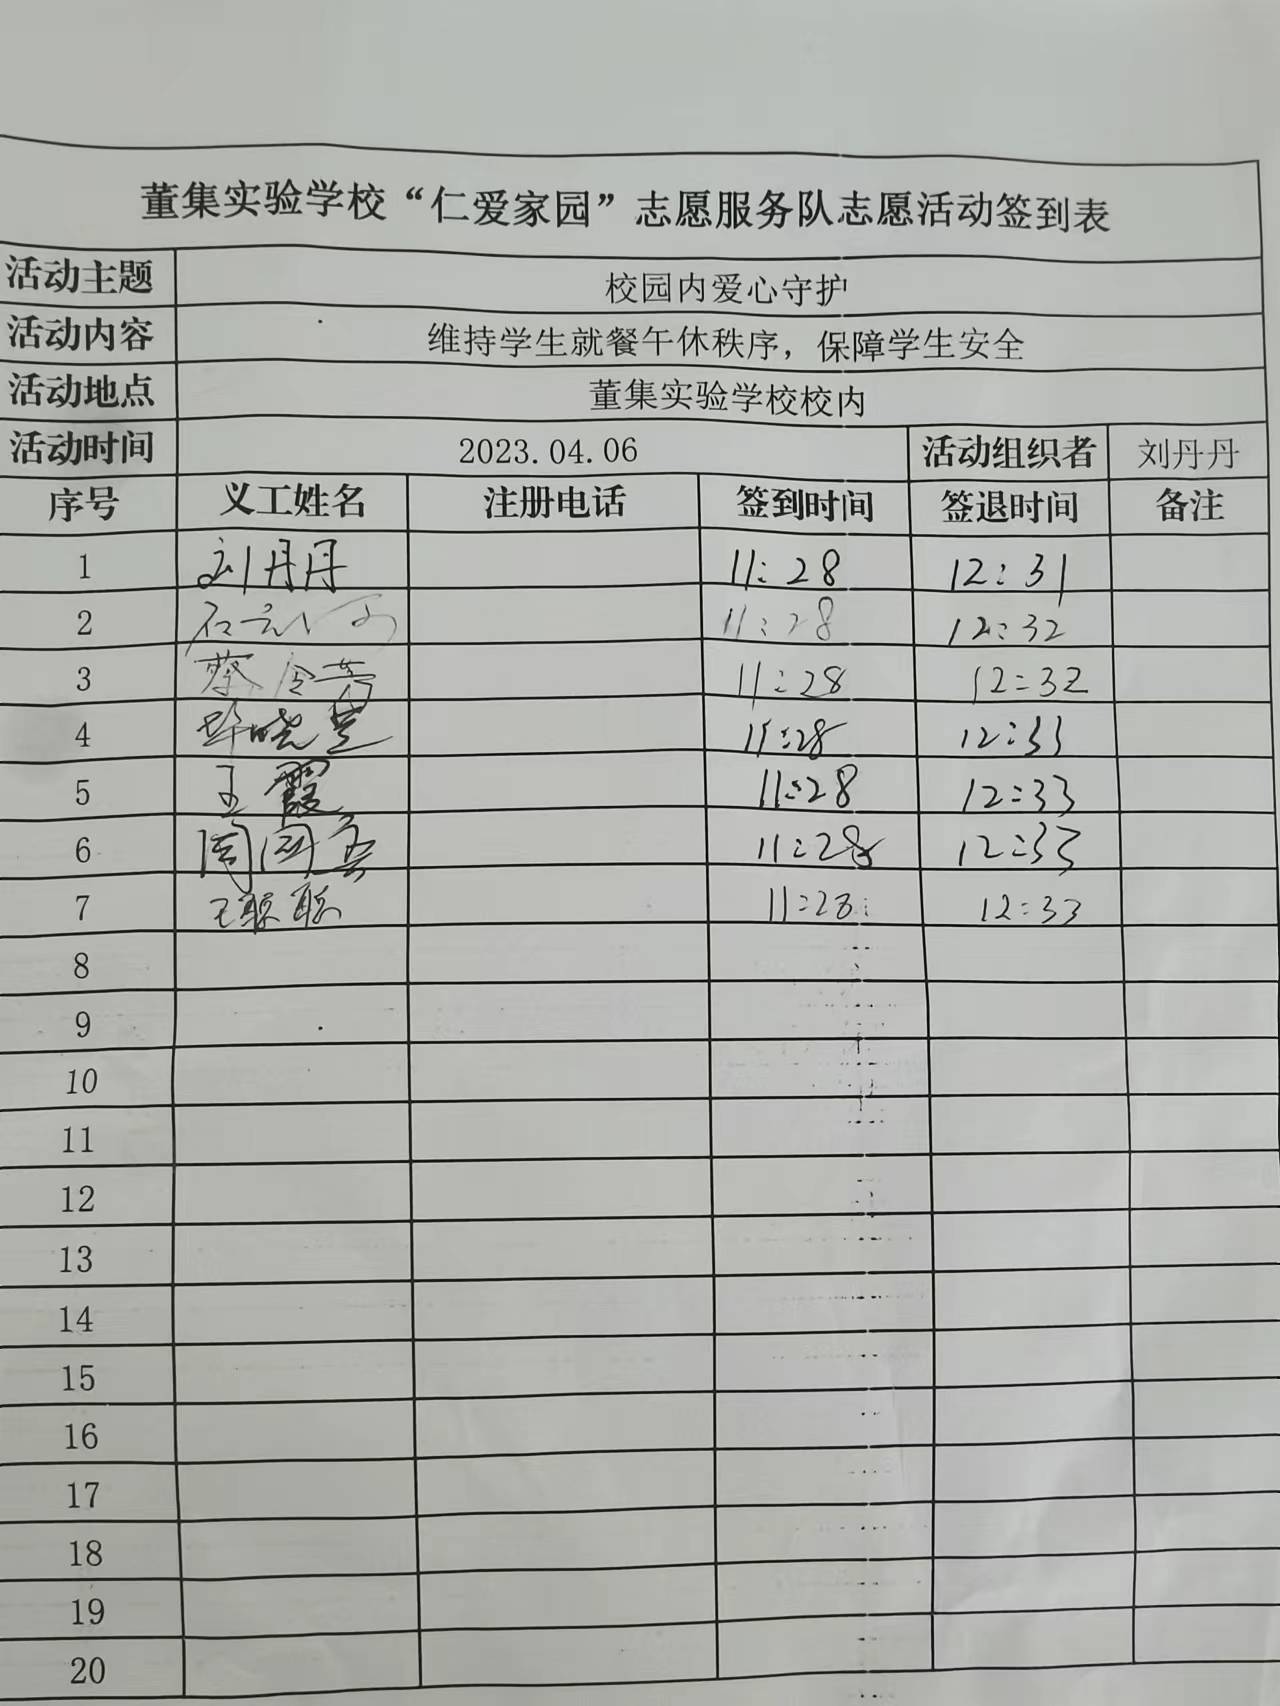 董集实验学校“仁爱家园”志愿服务队志愿活动签到表
活动主题 校园内爱心守护
活动内容 维持学生就餐午休秩序，保障学生安全
活动地点 董集实验学校校内
活动时间 2023.04.06 活动组织者 刘丹丹
序号 义工姓名 注册电话 签到时间 签退时间 备注
1 刘丹丹 11:28 12:31
2 11:28 12:32
3 11:28 12:32
4 11:28 12:33
5 王霞 11:28 12:33
6 11:28 12:33
7 王聪聪 11:28 12:33
8
9
10
11
12
13
14
15
16
17
18
19
20